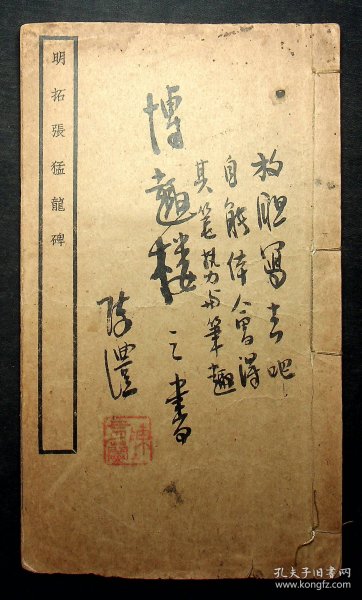 放胆寫去吧
自能体會得
其笔势与筆趣
博趣楼之書
明拓張猛龍碑
孔夫子旧书网
www.kongfz.com